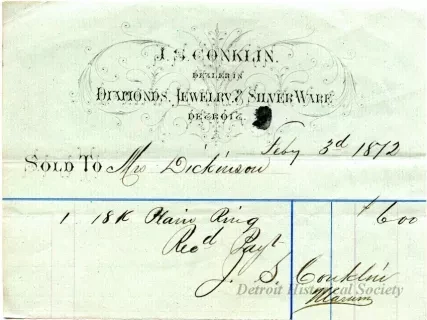 J. S. CONKLIN.
DEALER IN
DIAMONDS, JEWELRY, & SILVER WARE
DETROIT,
Feby 3d 1872
SOLD TO Mrs Dickinson
1 18K Plain Ring $6 00
Rec'd Payt
J. S. Conklin
Detroit Historical Society